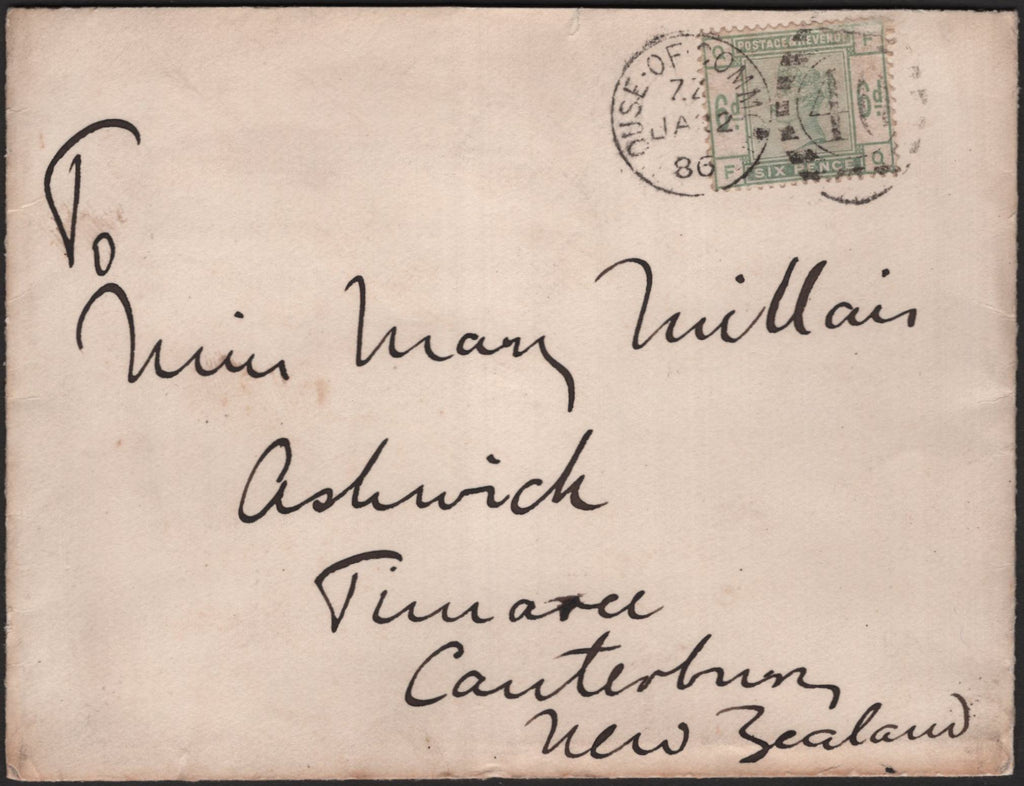 OUSE·OF·COMM
ZZ
JA 2
86
POSTAGE & REVENU
F
6d.
6d.
F SIX PENCE Q
To
Miss Mary Millais
Ashwick
Timaru
Canterbury
New Zealand